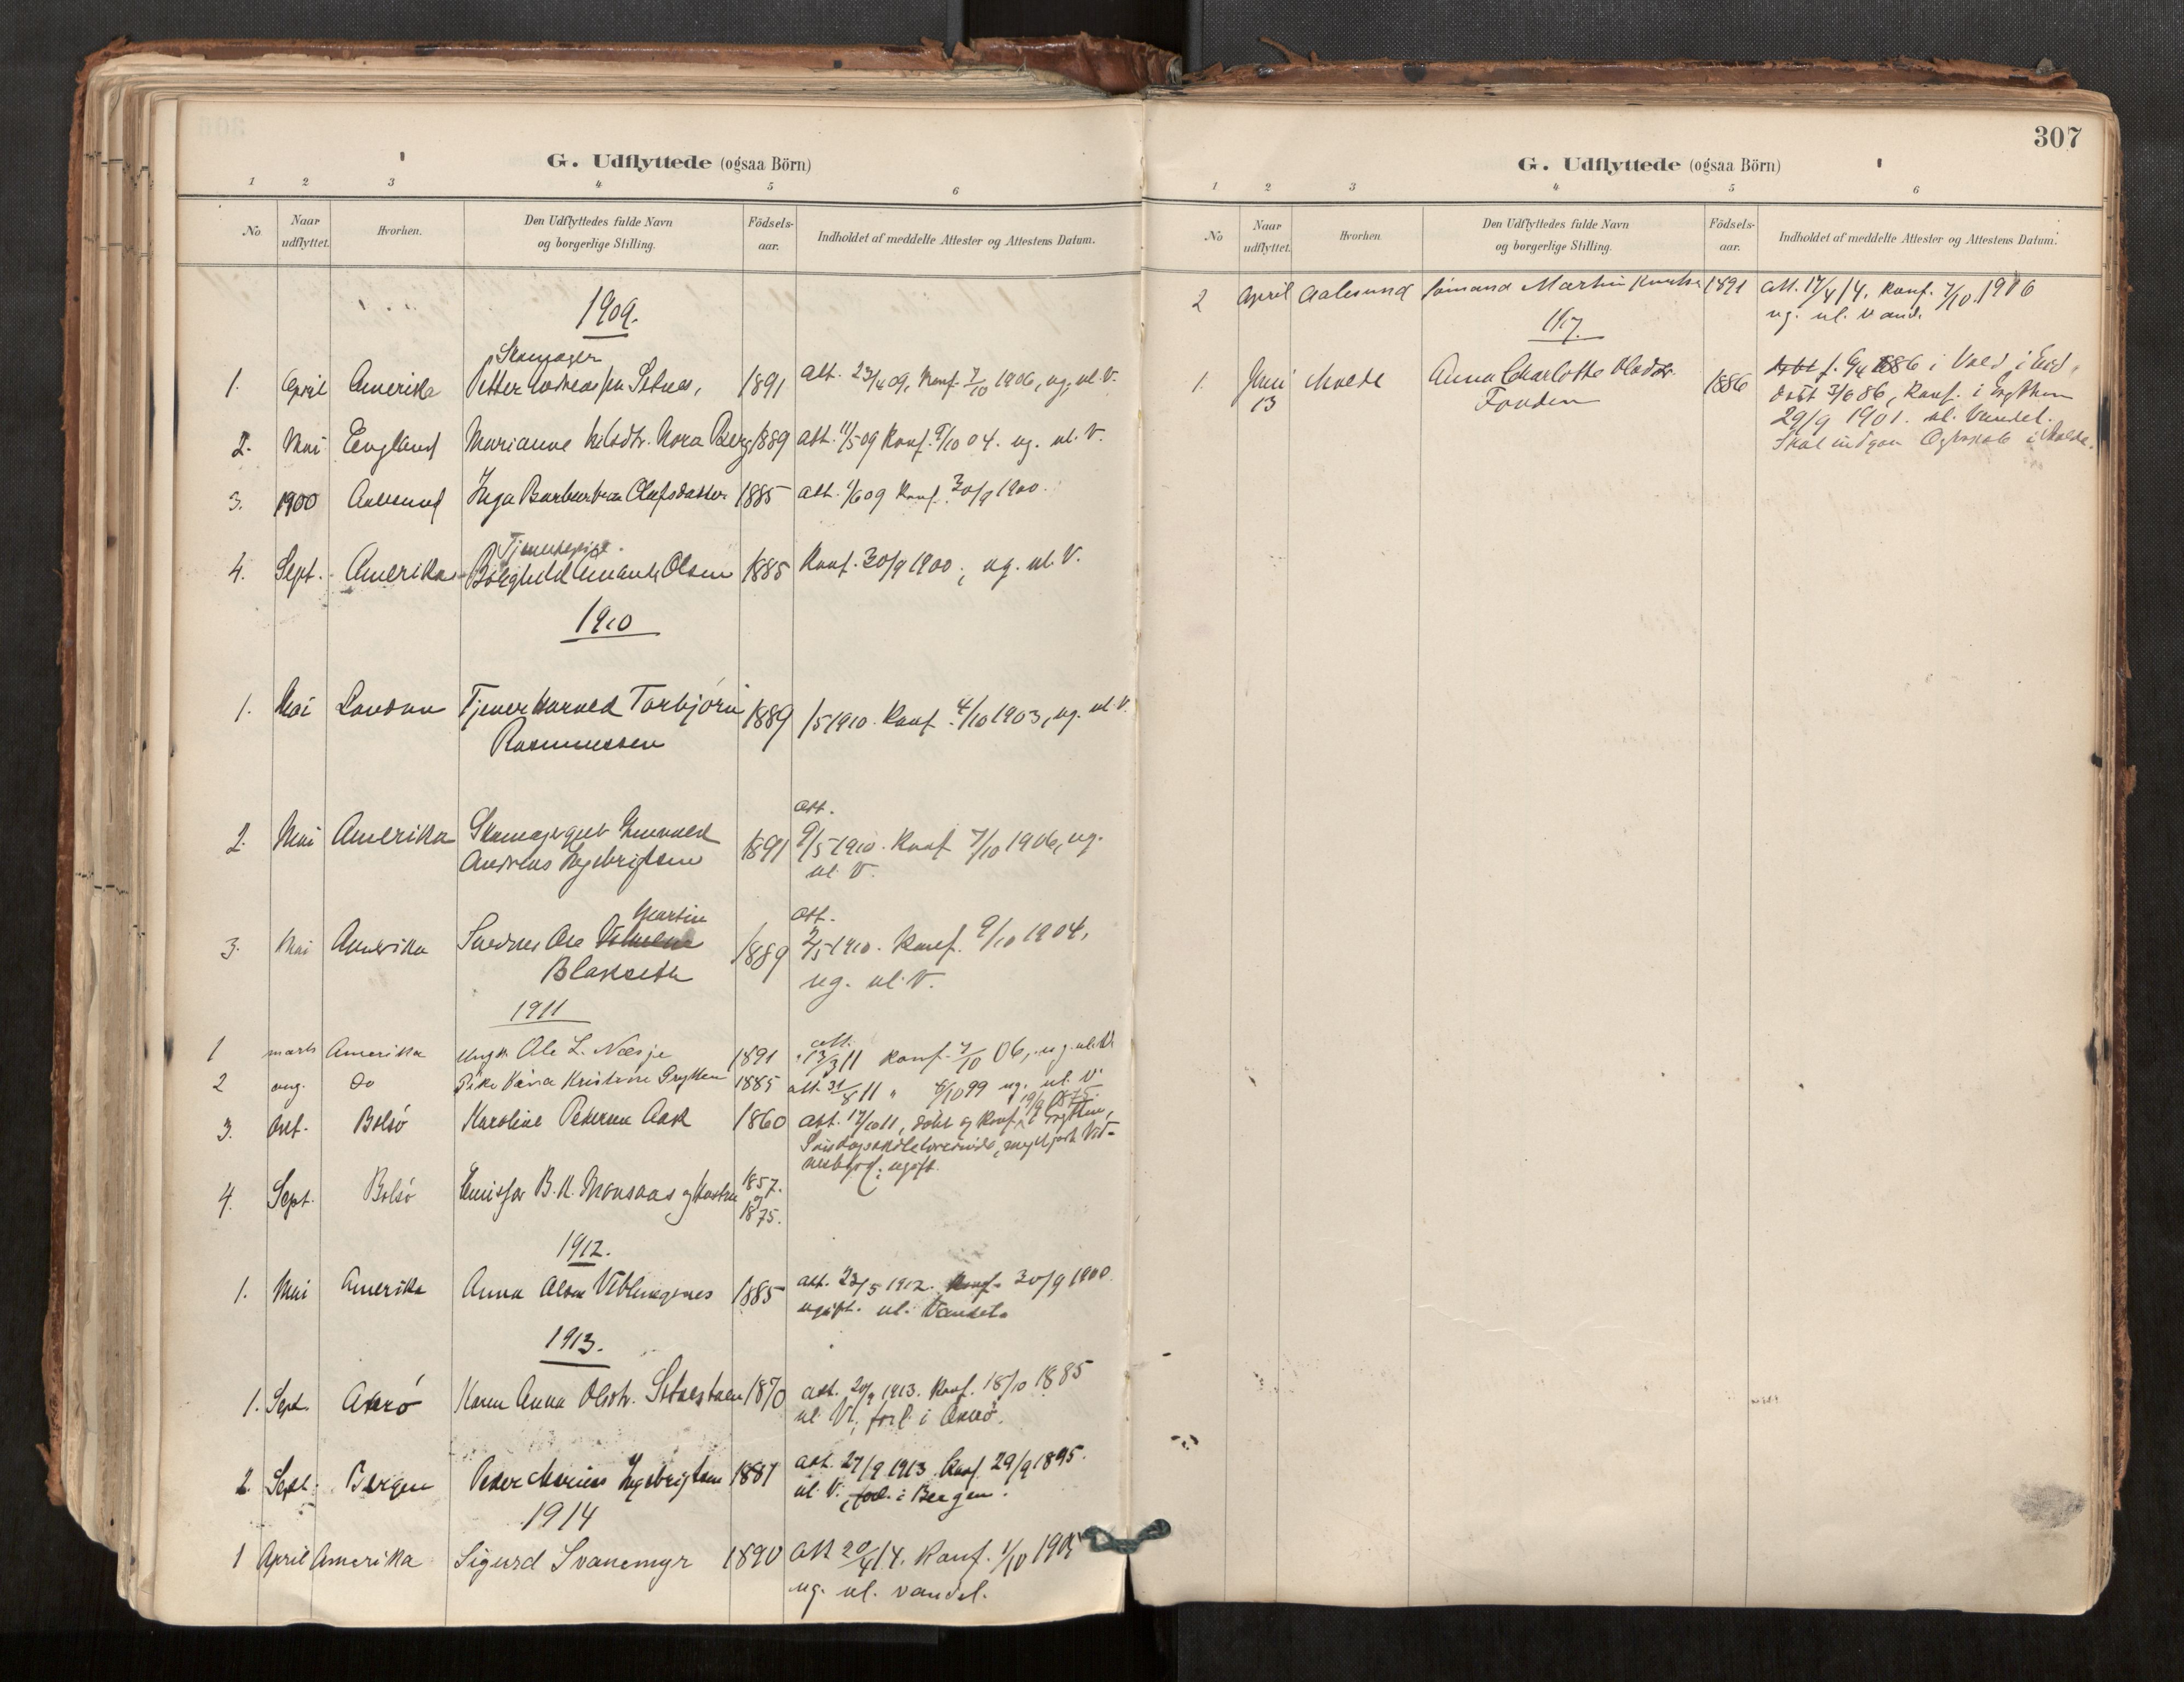 G. Udflyttede (ogsaa Börn)
1 2 3 4 5 6
No. Naar udflyttet. Hvorhen. Den Udflyttedes fulde Navn og borgerlige Stilling. Födsels-aar. Indholdet af meddelte Attester og Attestens Datum.
1909.
Skomager
1. April Amerika Petter Andreas Setnes, 1891 att. 23/4 09, Konf. 7/10 1906, ug. ul. V.
2. Mai England Marianne Nilsdtr. Nora Berg 1889 att. 11/5 09 Konf. 9/10 04. ug. ul. V.
3. 1900 Aalesund Inga Barbarbra Olafsdatter 1885 att. 1/6 09 Konf. 30/9 1900.
Tjenestepige.
4. Sept. Amerika Borghild Amanda Olsen 1885 Konf. 30/9 1900, ug. ul. V.
1910
1. Mai London Tjener Harald Torbjörn 1889 /5 1910. Konf. 4/10 1903, ug. ul. V.
Rasmussen
att.
2. Mai Amerika Skomagergut 1891 9/5 1910. Konf 7/10 1906, ug.
Andreas Ingebrigtsen
ul. V.
Martin att.
3. Mai Amerika Snedker Ole 1889 2/5 1910. Konf. 9/10 1904,
Blakseth
ug. ul. V.
1911
1 marts Amerika ungk. Ole L. Næsje 1891 att. 13/3 11 Konf. 7/10 06, ug. ul. V.
2 aug. do Pike Kristine Grytten 1885 att. 31/8 11 " 8/10 99 ug. ul. V.
3. Okt. Bolsö Karoline Petersen Aak 1860 att. 17/10 11, döbt og Konf. i Grytten, 19/9 1875.
Söndagsskolelærerinde, Vid-
nesbyrd; ugift.
4. Sept. Bolsö Emissær B. K. Monsaas og Hustru 1857. og 1875.
1912.
1. Mai Amerika Anna Olsen Veblungsnes 1885 att. 23/5 1912. Konf. 30/9 1900.
ugift. ul. Vandel.
1913.
1. Sept. Akerö Karen Anna Olsdtr. Setnestuen 1870 att. 20/9 1913. Konf. 18/10 1885
ul. V., forl. i Akerö.
2. Sept. Bergen Peder Marius Ingebrigtsen 1881 att. 27/9 1913. Konf. 29/9 1895.
ul. V., forl. i Bergen.
1914
1 April Amerika Sigurd Svanemyr 1890 Att 20/4 14. Konf. 1/10 1905
ug. ul. vandel.
307
G. Udflyttede (ogsaa Börn)
1 2 3 4 5 6
No Naar udflyttet. Hvorhen. Den Udflyttedes fulde Navn og borgerlige Stilling. Födsels-aar. Indholdet af meddelte Attester og Attestens Datum.
2 April Aalesund Sömand Martin 1891 Att. 17/4 14. Konf. 7/10 1906
ug. ul. vand.
1917.
1. Juni 13 Molde Anna Charlotte Olsdtr. 1886 f. 9/4 1886 i Vold, i Eid,
döbt 3/6 86, Konf. i Grytten
29/9 1901. ul. Vandel.
Skal indgaa Ægteskab i Molde.